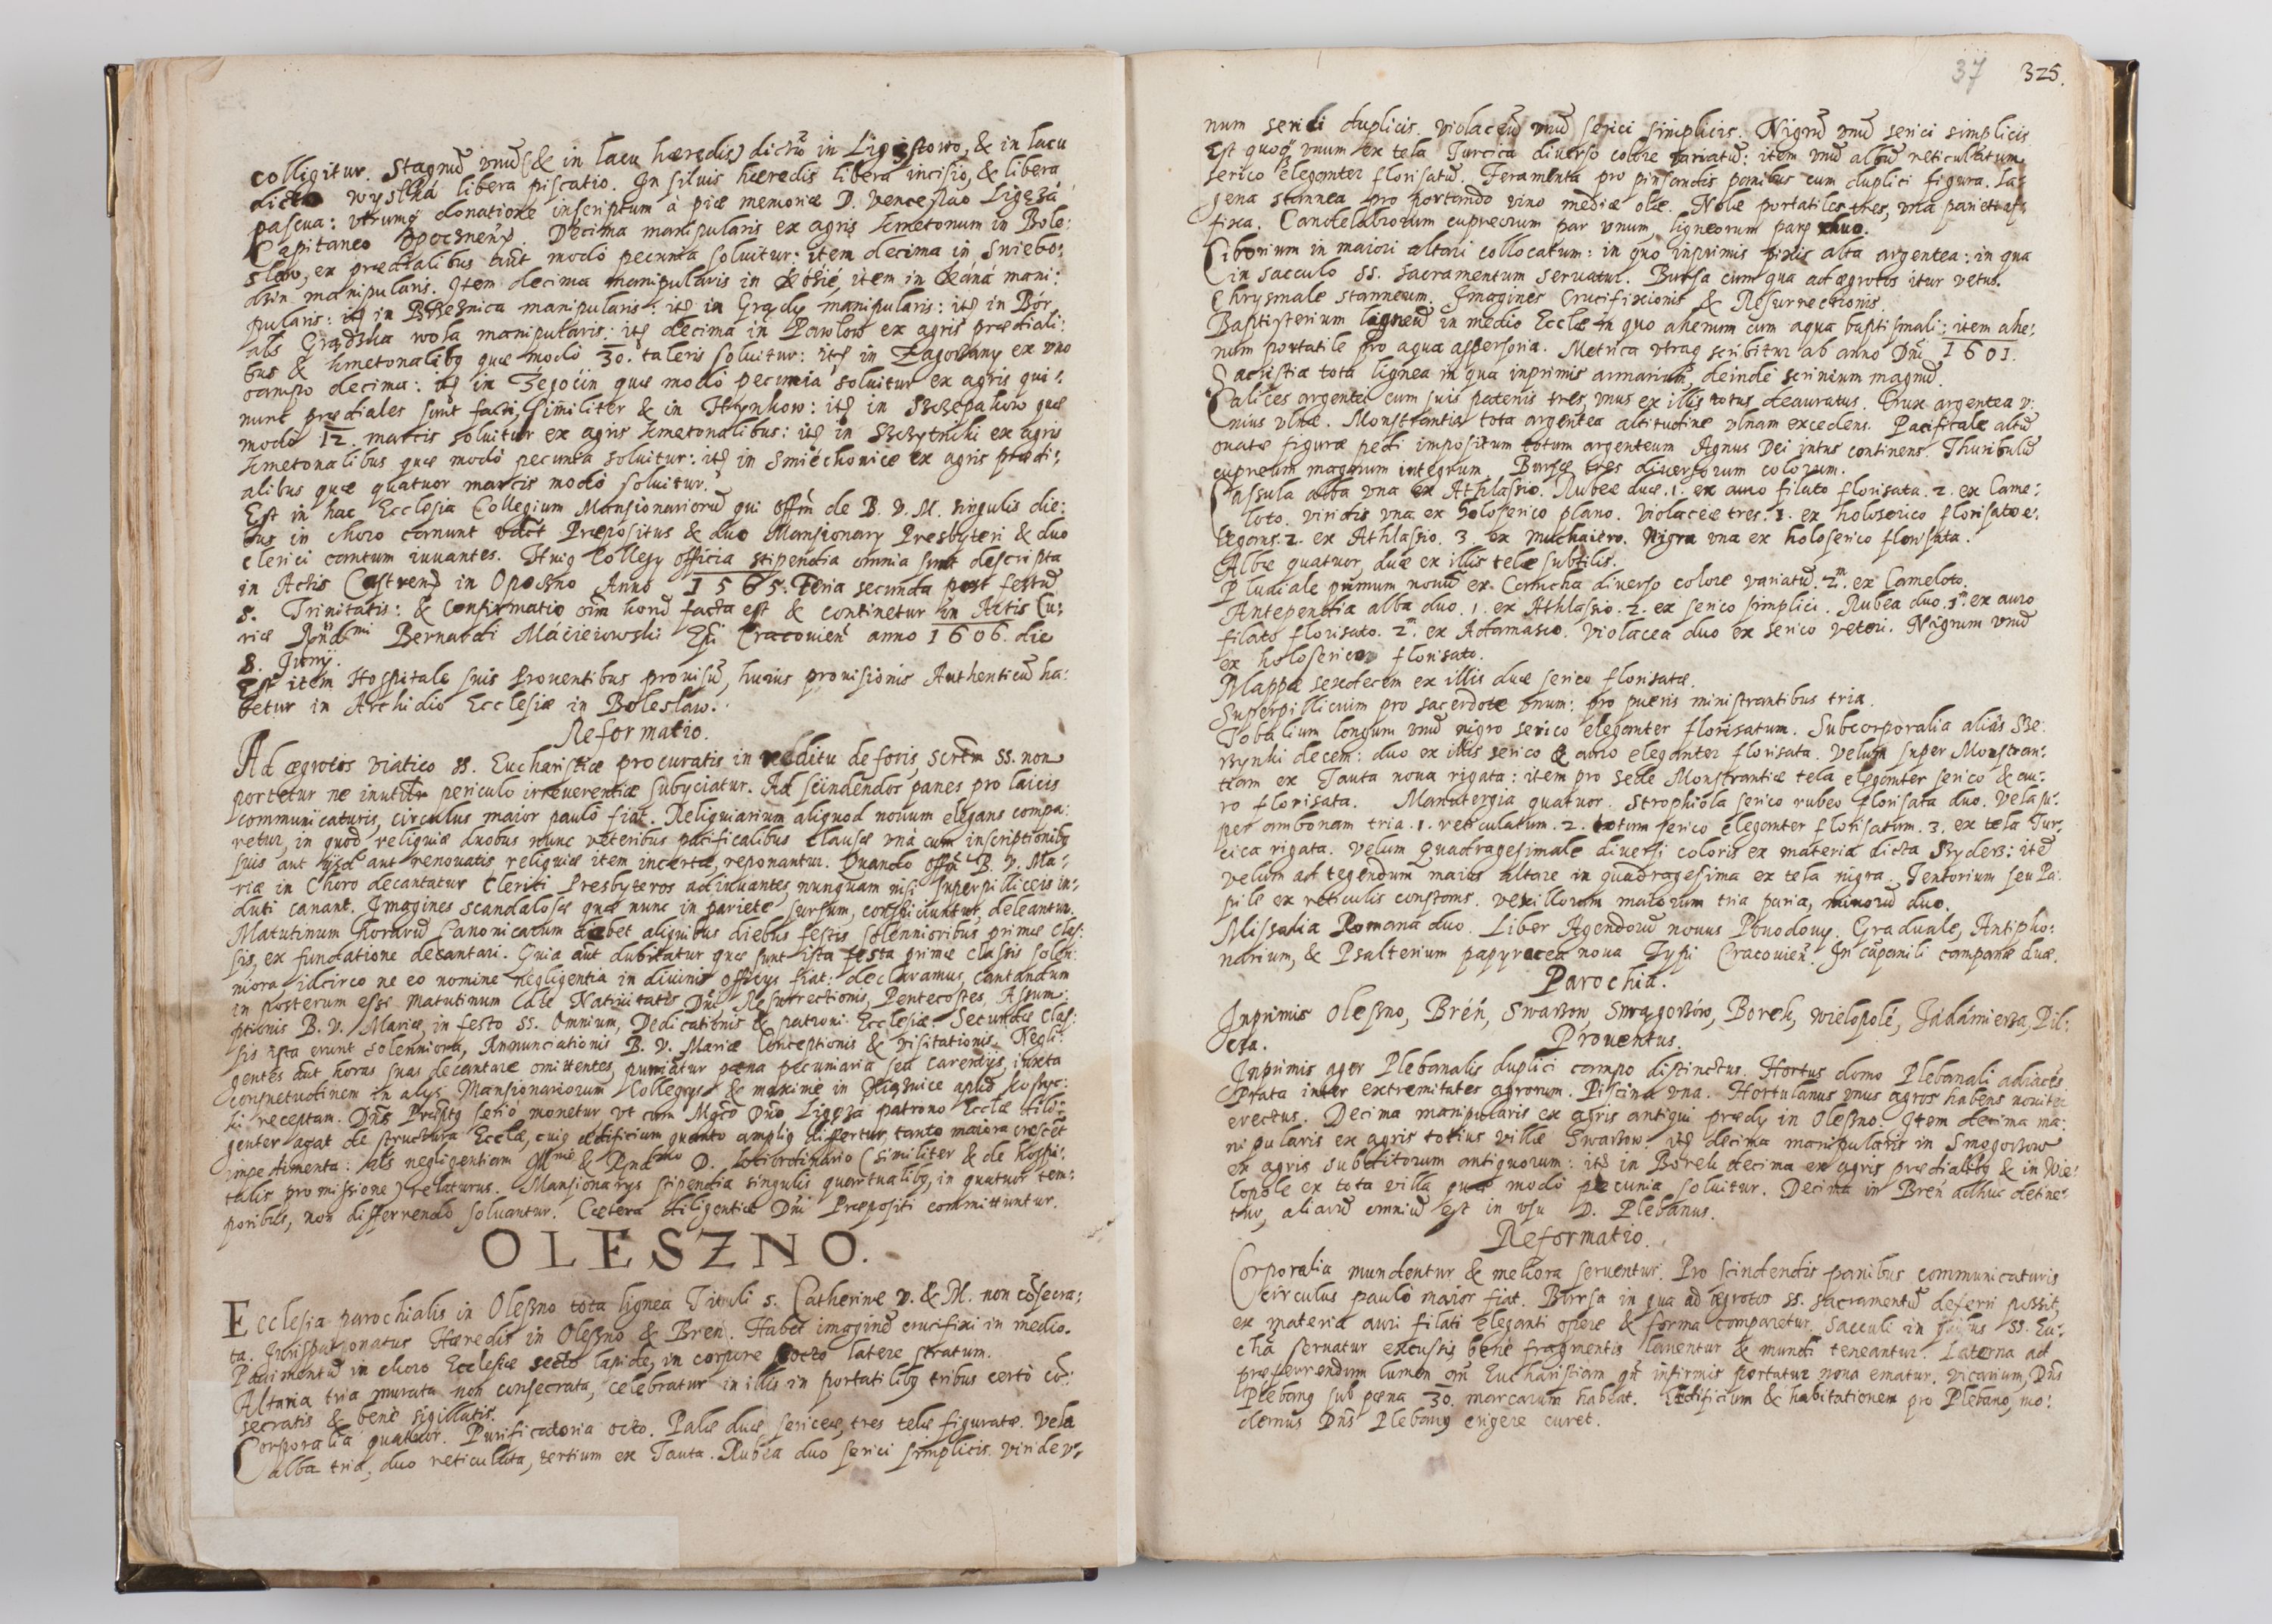 colligitur. Stagnū vnū (& in lacu hæredis) dictū in Ligęstowo, & in lacu
dicto wyslká libera piscatio. In siluis hæredis libera incisio, & libera
pascua: vtrumq donatione inscriptum à piæ memoriæ D. Venceslao Ligęzá
Capitaneo Opocznen. Decima manipularis ex agris kmetonum in Bole:
slaw, ex prædialibus aut modò pecunia soluitur: item decima in Swiebo:
dzin manipularis. Item decima manipularis in item in mani:
pularis: itē in manipularis: itē in Grądy manipularis: itē in Bor
als Grądzka wola manipularis: itē decima in Pawlow ex agris prædiali:
bus & kmetonalibq quæ modò 30. taleris soluitur: itē in Zagorzany ex vno
campo decima: itē in Zegocin quæ modò pecunia soluitur ex agris qui
nunc prædiales sunt facti, similiter & in Hrynkow: itē in Szczepanow quæ
modò 12. marcis soluitur ex agris kmetonalibus: itē in Szczytniki ex agris
kmetonalibus quæ modò pecunia soluitur: itē in Smiéchowice ex agris prædi:
alibus quæ quatuor marcis modò soluitur.
Est in hac Ecclesia Collegium Mansionariorū qui offm de B. V. M. singulis die:
bus in choro canunt Præpositus & duo Mansionary Presbyteri & duo
clerici cantum iuuantes. Huiq Collegy officia stipendia omnia sunt descripta
in Actis Castren in Opoczno Anno 1565. Feria secunda post festū
S. Trinitatis: & Confirmatio oīm horū facta est & continetur in Actis Cu:
riæ Rñdmi Bernardi Máciéiowski Epi Cracouien anno 1606. die
8. Juny.
Est item Hospitale suis prouentibus prouisū, huius prouisionis Authenticū ha:
betur in Archidio Ecclesiæ in Boleslaw.
Reformatio.
Ad ægrotos viatico SS. Eucharistiæ procuratis in redditu de foris, Scrm SS. non
portetur ne inutili periculo irreuerentiæ subyciatur. Ad scindendos panes pro laicis
communicaturis, circulus maior paulò fiat. Reliquiarium aliquod nouum elegans compa:
retur, in quod reliquiæ duobus nunc veteribus pacificalibus clausæ vnà cum inscriptionibq
suis aut ijsd aut renouatis reliquiæ item incertæ, reponantur. Quando offm B. V. Ma:
riæ in Choro decantatur Clerici Presbyteros adiuuantes, nunquam nisi superpilliceis in:
duti canant. Imagines scandalosæ quæ nunc in pariete sursum, conspiciuntur, deleantur.
Matutinum horarū Canonicarum debet aliquibus diebus festis solennioribus primæ clas:
sis, ex fundatione decantari. Quia aut dubitatur quæ sunt ista festa primæ classis solen:
niora, idcirco ne eo nomine negligentia in diuinis officys fiat: declaramus, cantandum
in posterum esse Matutinum die Natiuitatis Dni Resurrectionis, Pentecostes, Assum:
ptionis B. V. Mariæ, in festo SS. Omnium, Dedicationis & patroni Ecclesiæ. Secundæ clas:
sis ista erunt solenniora, Annunciationis B. V. Mariæ Conceptionis & visitationis. Negli:
gentes aut horas suas decantare omittentes, puniatur pæna pecuniaria seu carendys, iuxta
consuetudinem in alys Mansionariorum Collegys & maximè in apud
receptam. Dñs Præptq seriò monetur vt cum Mgco Dño Ligęza patrono Ecclæ dili:
genter agat de structura Ecclæ, cuiq ædificium quanto ampliq differtur, tanto maiora crescēt
impedimenta: als negligentiam Illmo & Rñdmo D. Lociordinario (similiter & de hospi:
talis promissione) relaturus. Mansionarys stipendia singulis quartualibq, in quatuor tem:
poribus, non differrendo soluantur. Cætera diligentiæ Dni Præpositi committuntur.
OLESZNO.
Ecclesia parochialis in Oleszno tota lignea Tituli S. Catherinæ V. & M. non cōsecra:
ta. Jurispatronatus Hæredis in Oleszno & Bren. Habet imaginē crucifixi in medio.
Pauimentū in choro Ecclesiæ secto lapide, in corpore cocto latere stratum.
Altaria tria murata non consecrata, celebratur in illis in portatilibq tribus certò cō:
secratis & benè sigillatis.
Corporalia quatuor. Purificatoria octo. Palæ duæ sericeæ, tres telæ figuratæ. Vela
alba tria, duo reticulata, tertium ex Tauta. Rubea duo serici simplicis. viride v:
37 325.
num serici duplicis. violaceū vnū serici simplicis. Nigrū vnū serici simplicis
Est quoq vnum ex tela Turcica diuerso colore variatū: item vnū albū reticulatum
serico eleganter florisatū. Feramenta pro pinsandis panibus cum duplici figura. La:
gena stannea pro portando vino mediæ ollæ. Nolæ portatiles tres, vna parieti af:
fixa. Candelabrorum cupreorum par vnum, ligneorum para duo.
Ciborium in maiori altari collocatum: in quo inprimis pixis alta argentea: in qua
in sacculo SS. Sacramentum seruatur. Bursa cum qua ad ægrotos itur vetus.
Chrysmale stanneum. Imagines Crucifixionis & Resurrectionis.
Baptisterium ligneū in medio Ecclæ in quo ahenum cum aqua baptismali: item ahe:
num portatile pro aqua aspersoria. Metrica vtraq scribitur ab anno Dni 1601.
Sacristia tota lignea in qua inprimis armarium, deindè scrinium magnū.
Calices argentei cum suis patenis tres, vnus ex illis totus deauratus. Crux argentea v:
nius vlnæ. Monstrantia tota argentea altitudine vlnam excedens. Pacificale altū
ouatæ figuræ pedi impositum totum argenteum Agnus Dei intus continens. Thuribulū
cupreum magnum integrum. Bursæ tres diuersorum colorum.
Cassula alba vna ex Athlassio. Rubeæ duæ. 1. ex auro filato florisata. 2. ex Came:
loto. viridis vna ex holoserico plano. Violaceæ tres. 1. ex holoserico florisato e:
legans. 2. ex Athlassio. 3. ex muchaiero. Nigra vna ex holoserico florisata.
Albæ quatuor, duæ ex illis telæ subtilis.
Pluuiale primum nouū ex Camcha diuerso colore variatū. 2m. ex Cameloto.
Antependia alba duo. 1. ex Athlassio. 2. ex serico simplici. Rubea duo. 1m. ex auro
filato florisato. 2m. ex Adamasco. Violacea duo ex serico veteri. Nigrum vnū
ex holoserico florisato.
Mappæ sexdecem ex illis duæ serico florisatæ.
Superpilliceum pro sacerdote vnum: pro pueris ministrantibus tria.
Tobalium longum vnū nigro serico eleganter florisatum. Subcorporalia aliàs
decem: duo ex illis serico & auro eleganter florisata. Velum super Monstran:
tiam ex Tauta noua rigata: item pro sede Monstrantiæ tela eleganter serico & au:
ro florisata. Manutergia quatuor. Strophiola serico rubeo florisata duo. Vela su:
per ambonam tria. 1. reticulatum. 2. totum serico eleganter florisatum. 3. ex tela Tur:
cica rigata. Velum Quadragesimale diuersi coloris ex materia dicta itē
velum ad tegendum maius altare in quadragesima ex tela nigra. Tentorium seu Pa:
pile ex reticulis constans. Vexillorum maiorum tria paria, minorū duo.
Missalia Romana duo. Liber Agendorū nouus Powodowy. Graduale, Antipho:
narium, & Psalterium papyracea noua Typi Cracouien. In campanili campanæ duæ.
Parochia.
Inprimis Oleszno, Brén, Swarzow, Smągorzów, Borek, Wielopolé, Jadámierza, Pil:
cza.
Prouentus.
Inprimis ager Plebanalis duplici campo distinctus. Hortus domo Plebanali adiacēs
Prata inter extremitates agrorum. Piscina vna. Hortulanus vnus agros habens nouiter
erectus. Decima manipularis ex agris antiqui prædy in Oleszno. Item decima ma:
nipularis ex agris totius villæ Swarzow: itē decima manipularis in Smogorzow
ex agris subditorum antiquorum: itē in Borek decima ex agris prædialibq & in Wie:
lopole ex tota villa quæ modò pecunia soluitur. Decima in Bren adhuc detine:
tur, aliarū omniū est in vsu D. Plebanus.
Reformatio.
Corporalia mundentur & meliora seruentur. Pro scindendis panibus communicaturis
circulus paulò maior fiat. Bursa in qua ad ægrotos SS. sacramentū deferri possit,
ex materia auri filati eleganti opere & forma comparetur. Sacculi in quibus SS. Eu:
chā seruatur excussis benè fragmentis lauentur & mundi teneantur. Laterna ad
præferrendum lumen añ Eucharistiam qñ infirmis portatur noua ematur. Vicarium, Dñs
Plebanq sub pæna 30. marcarum habeat. Ædificium & habitationem pro Plebano, mo:
dernus Dñs Plebanq erigere curet.